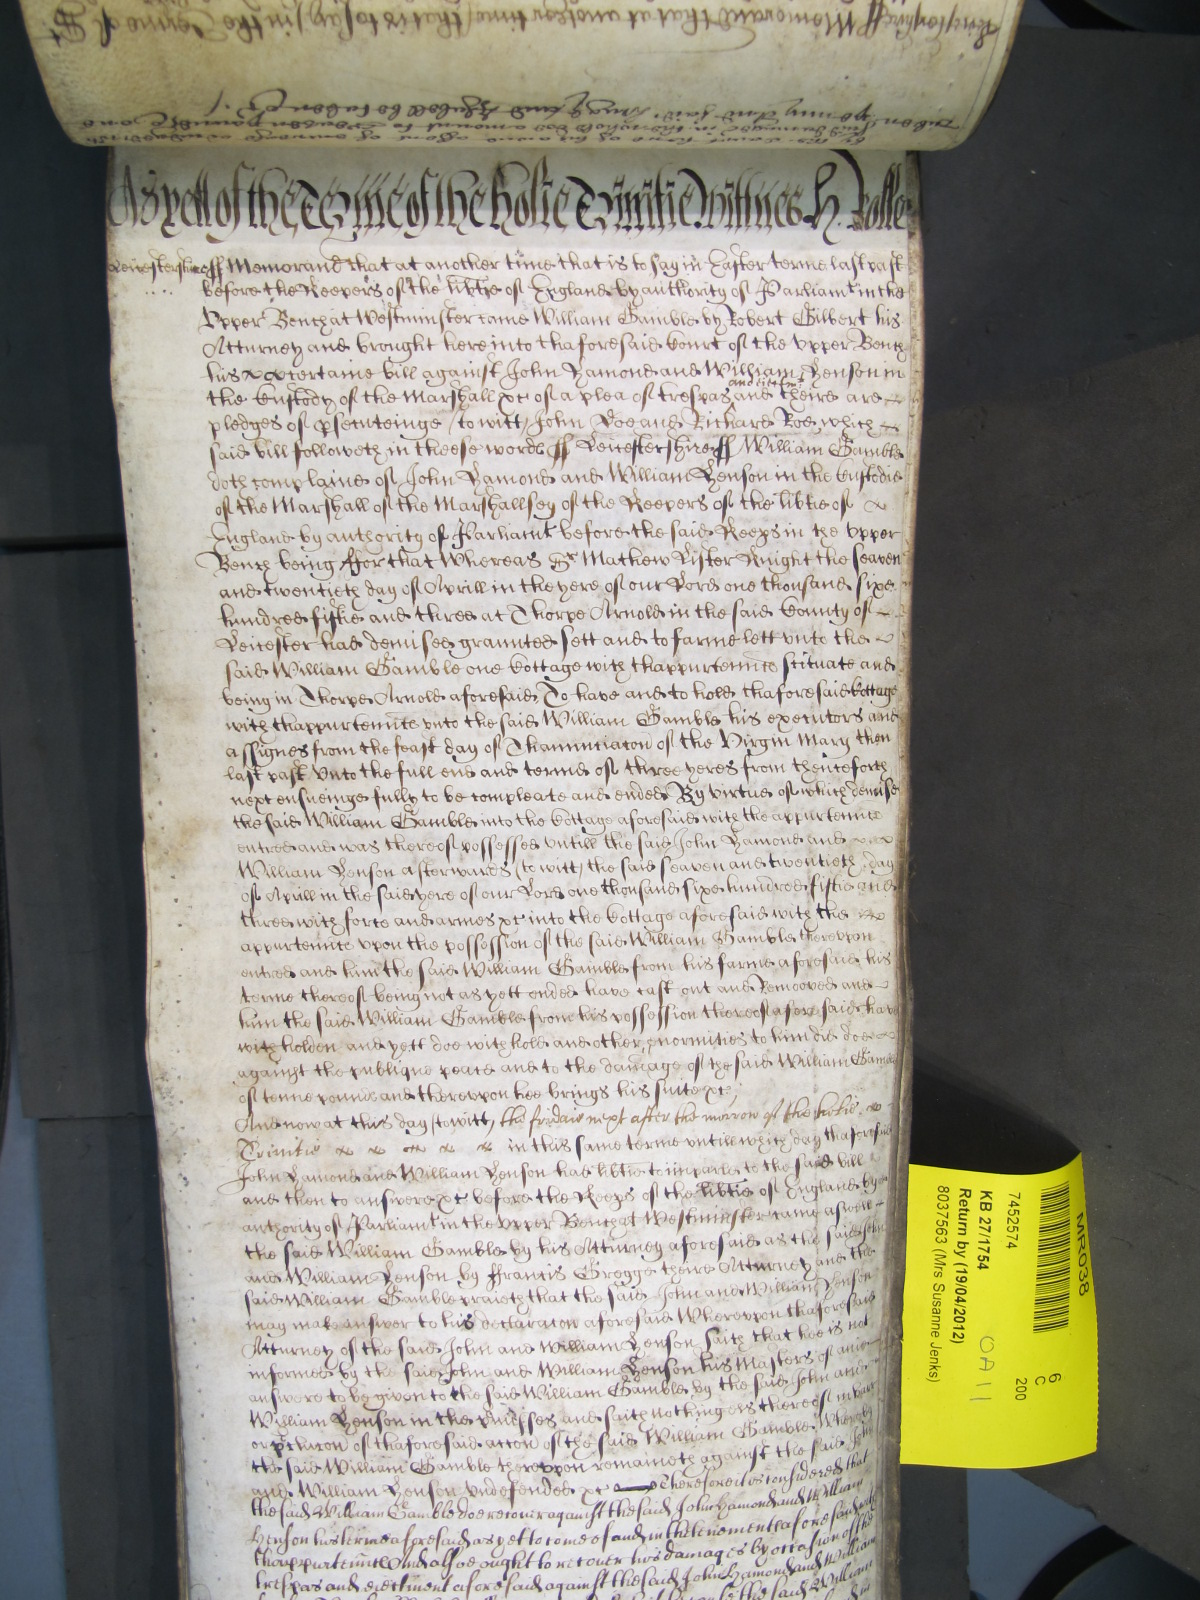 As yett of the Terme of the holie Trinitie Wittnes H. Rolle
Leicestershire ss Memorand that at another time that is to say in Easter terme last past
before the Keepers of the libtie of England by authority of Parliamt in the
Upper Bench at Westminster came William Gamble by Robert Gilbert his
Atturney and brought here into thaforesaid Court of the Upper Bench
his certaine bill against John Hamond and William Henson in
the Custody of the Marshall &c of a plea of trespas and eiectmt and theire are
pledges of psecuteinge to witt John Doe and Richard Roe which
said bill followeth in theese words ss Leicestershire ss William Gamble
doth complaine of John Hamond and William Henson in the Custodie
of the Marshall of the Marshallsey of the Keepers of the libtie of
England by authority of Parliamt before the said Keeps in the Upper
Bench being ffor that Whereas Sr Mathew Lister Knight the seaven
and twentieth day of Aprill in the yere of our Lord one thousand sixe
hundred fiftie and three at Thorpe Arnold in the said County of
Leicester had demised graunted sett and to farme lett unto the
said William Gamble one Cottage with thappurtennces scituate and
being in Thorpe Arnold aforesaid To have and to hold thaforesaid Cottage
with thappurtennces unto the said William Gamble his executors and
assignes from the feast day of Thanunciaton of the Virgin Mary then
last past unto the full end and terme of three yeres from thenceforth
next ensueinge fully to be compleate and ended By virtue of which demise
the said William Gamble into the Cottage aforesaid with the appurtennces
entred and was thereof possessed untill the said John Hamond and
William Henson afterwards to witt the said seaven and twentieth day
of Aprill in the said yere of our Lord one thousand sixe hundred fiftie and
three with force and armes &c into the Cottage aforesaid with the
appurtennces upon the possession of the said William Gamble thereupon
entred and him the said William Gamble from his farme aforesaid his
terme thereof being not as yett ended have cast out and Removed and
him the said William Gamble from his possession thereof aforesaid have
withholden and yett doe withhold and other enormities to him did doe
against the publique peace and to the damage of the said William Gamble
of tenne pound and thereupon hee brings his suite &c
And now at this day to witt the fridaie next after the morrow of the holie
Trinitie in this same terme untill which day thaforesaid
John Hamond and William Henson had libtie to imparle to the said bill
and then to answere &c before the Keeps of the libtie of England by
authority of Parliamt in the Upper Bench at Westminster came aswell
the said William Gamble by his Atturney aforesaid as the said John
and William Henson by ffrancis Gregge theire Atturney and the
said William Gamble praieth that the said John and William Henson
may make answer to his declaraton aforesaid Whereupon thaforesaid
Atturney of the said John and William Henson saith that hee is not
informed by the said John and William Henson his Masters of anie
answere to be given to the said William Gamble by the said John and
William Henson in the pmisses and saith nothing els thereof in barr
or pclusion of thaforesaid acton of the said William Gamble Whereby
the said William Gamble thereupon remaineth against the said John
and William Henson undefended &c Therefore it is considered that
the said William Gamble doe recover against the said John Hamond and William
Henson his terme aforesaid as yet to come of and in the tenement aforesaid with
thappurtennces And alsoe ought to recover his damages by occasion of the
trespas and eiectment aforesaid against the said John Hamond and William
MR038
6
C
200
7452574
KB 27/1754
OA 11
Return by (19/04/2012)
8037563 (Mrs Susanne Jenks)